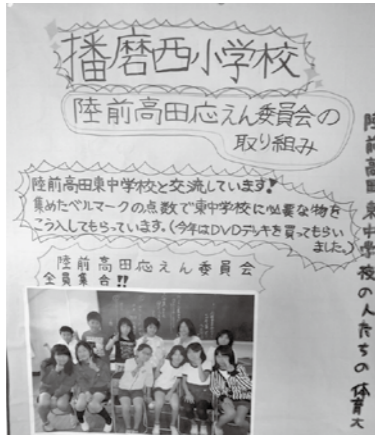 播磨西小学校
陸前高田応えん委員会の
取り組み
陸前高田東中学校と交流しています!
集めたベルマークの点数で東中学校に必要な物を
こう入してもらっています。(今年はDVDデッキを買ってもらい
ました。)
陸前高田応えん委員会
全員集合!!
陸前高田東中学校の人たちの体育大